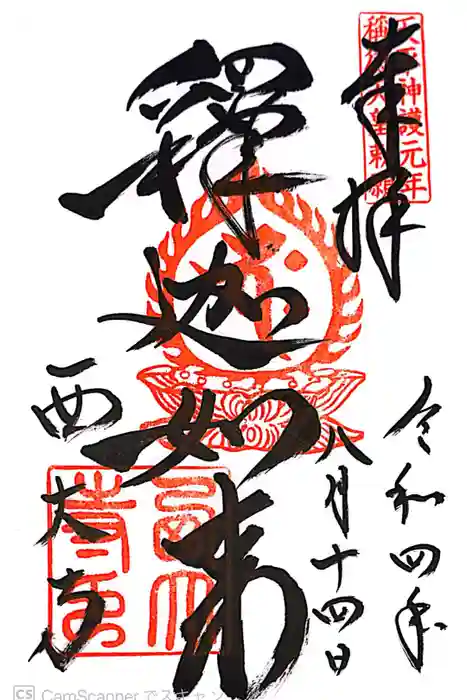 奉拝
天平神護元年
稱徳天皇勅願
令和四年
八月十四日
釋迦如来
西大寺
CS CamScanner でスキャン